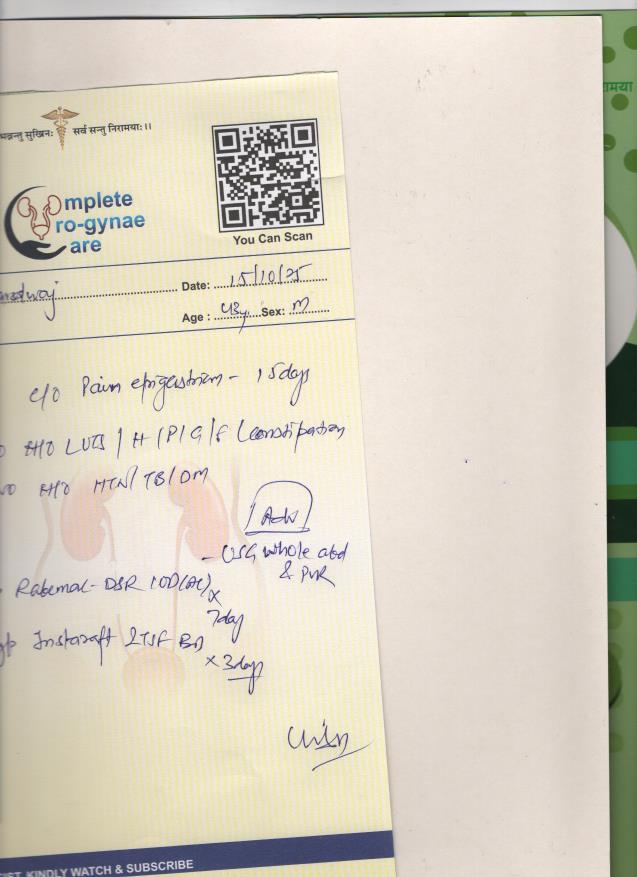 भवन्तु सुखिनः सर्व सन्तु निरामयाः।।
मया
mplete
ro-gynae
are
You Can Scan
Date: 15/10/25
Age : 43y Sex: M
c/o Pain epigastrium - 15 days
H/O LUTS / H / P / G / F / constipation
H/O HTN / TB / DM
Adv
- USG whole abd
& PVR
Rabemac-DSR 1OD(AC)
x
7day
Instaraft 2TSF BD
x 3days
KINDLY WATCH & SUBSCRIBE